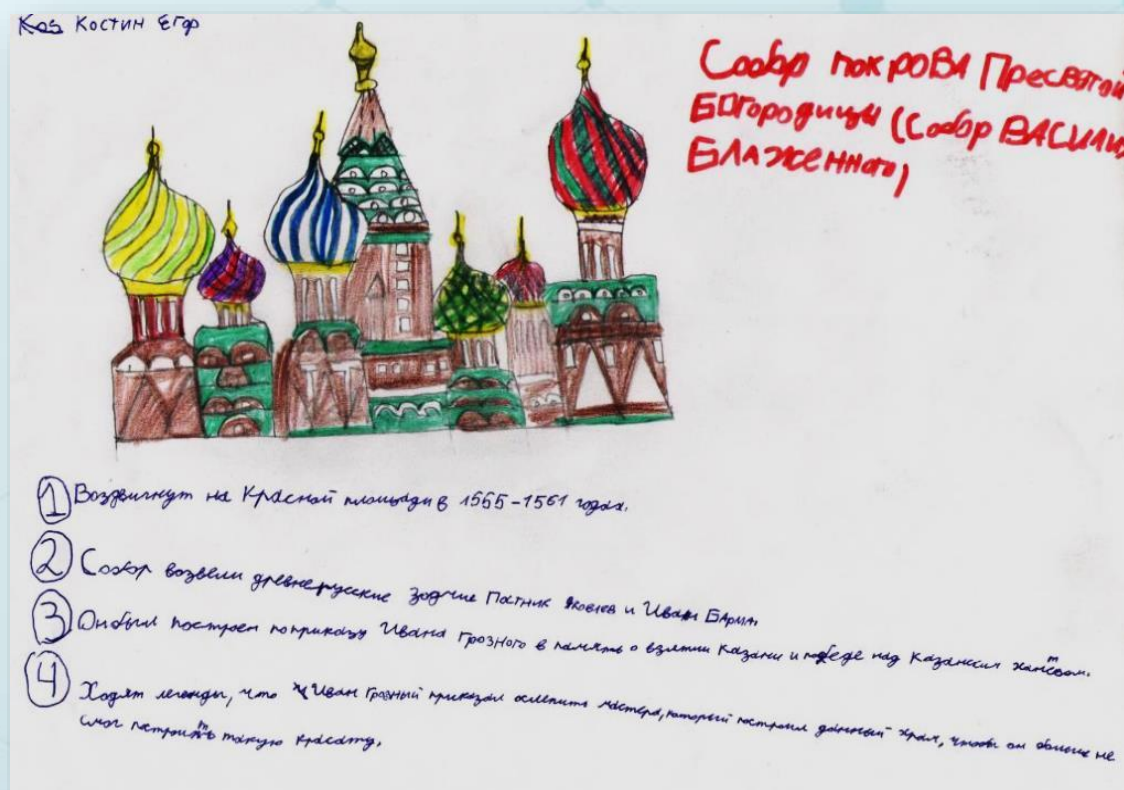 Костин Егор
Собор покрова Пресвятой
Богородицы (Собор Василия
Блаженного)
1 Воздвигнут на Красной площади в 1555-1561 годах.
2 Собор возвели древнерусские зодчие Постник Яковлев и Иван Барма.
3 Он был построен по приказу Ивана Грозного в память о взятии Казани и победе над Казанским ханством.
4 Ходят легенды, что Иван Грозный приказал ослепить мастера, который построил данный храм, чтобы он больше не
смог построить такую красоту.